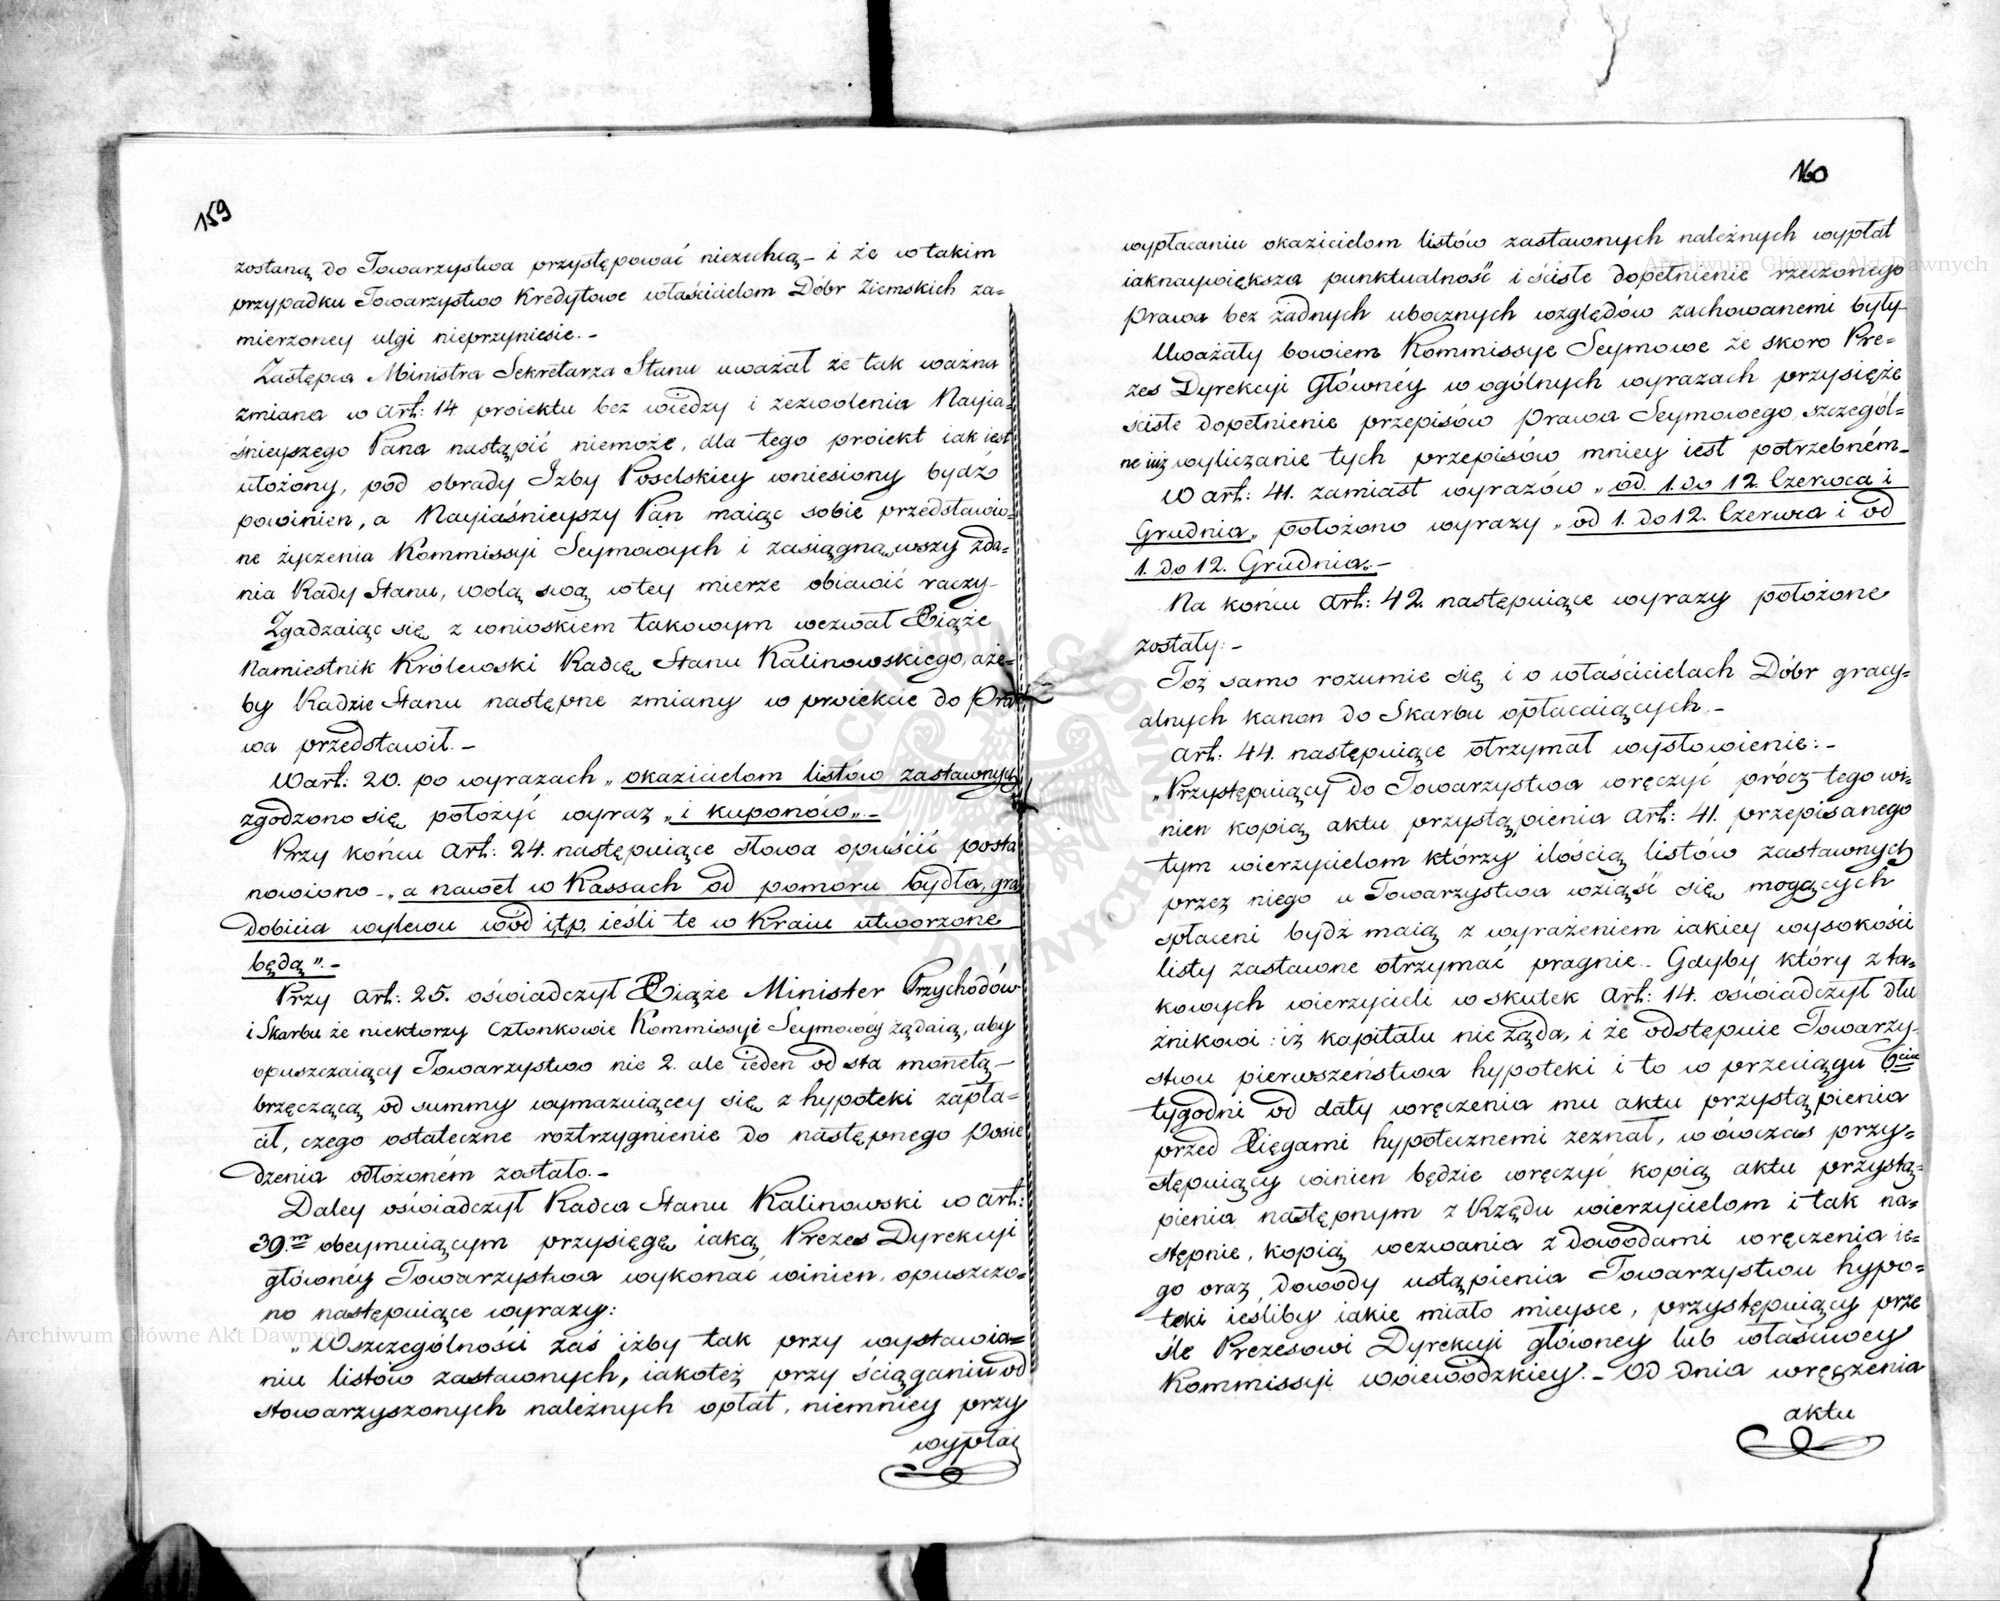 159
zostaną do Towarzystwa przystępować niezechcą – i że w takim
przypadku Towarzystwo Kredytowe właścicielom Dóbr Ziemskich za=
mierzoney ulgi nieprzyniesie. –
Zastępca Ministra Sekretarza Stanu uważał że tak ważna
zmiana w art: 14 proiektu bez wiedzy i zezwolenia Nayia=
śnieyszego Pana nastąpić niemoże, dla tego proiekt iak iest
ułożony, pod obrady Izby Poselskiey wniesiony bydź
powinien, a Nayiaśnieyszy Pan maiąc sobie przedstawio=
ne życzenia Kommissyi Seymowych i zasiągnąwszy zda=
nia Rady Stanu, wolą swą w tey mierze obiawić raczy –
Zgadzaiąc się z wnioskiem takowym wezwał Xiąże
Namiestnik Królewski Radcę Stanu Kalinowskiego, aże=
by Radzie Stanu następne zmiany w proiekcie do Pra=
wa przedstawił. –
W art: 20. po wyrazach „okazicielom listów zastawnych
zgodzono się położyć wyraz „i kuponów„. –
Przy końcu Art: 24. następuiące słowa opuścić posta
nowiono – „a nawet w Kassach od pomoru bydła, gra
dobicia wylewu wód i t. p. ieśli te w Kraiu utworzone
będą”. –
Przy art: 25. oświadczył Xiąże Minister Przychodów
i Skarbu że niektorzy Członkowie Kommissyi Seymowéy żądaią, aby
opuszczaiący Towarzystwo nie 2. ale ieden od sta monetą –
brzęczącą od summy wymazuiącey się z hypoteki zapła=
cił, czego ostateczne roztrzygnienie do następnego Posie
dzenia odłożoném zostało. –
Daley oświadczył Radca Stanu Kalinowski w art:
39.m obeymuiącym przysięgę iaką Prezes Dyrekcyi
główney Towarzystwa wykonać winien, opuszczo=
no następuiące wyrazy:
„W szczególności zaś iżby tak przy wystawia=
niu listów zastawnych, iakoteż przy ściąganiu od
stowarzyszonych należnych opłat, niemniey przy
wypłac
160
wypłacaniu okazicielom listów zastawnych należnych wypłat
iaknaywiększa punktualność i ściśłe dopełnienie rzeczonego
Prawa bez żadnych ubocznych względów zachowanemi były –
Uważały bowiem Kommissye Seymowe że skoro Pre=
zes Dyrekcyi Główney w ogólnych wyrazach przysięże
ścisłe dopełnienie przepisów Prawa Seymowego, szczegól=
ne iuż wyliczanie tych przepisów mniey iest potrzebném –
W art: 41. zamiast wyrazów „od 1. do 12. Czerwca i
Grudnia„ położono wyrazy „od 1. do 12. Czerwca i od
1. do 12. Grudnia„ –
Na końcu Art: 42. następuiące wyrazy położone
zostały: –
Toż samo rozumie się i o właścicielach Dóbr gracy=
alnych kanon do Skarbu opłacaiących. –
Art: 44. następuiące otrzymał wysłowienie: –
„Przystępuiący do Towarzystwa wręczyć prócz tego wi=
nien kopią aktu przystąpienia Art: 41. przepisanego
tym wierzycielom którzy ilością listów zastawnych
przez niego u Towarzystwa wziąść się mogących
spłaceni bydź maią z wyrażeniem iakiey wysokości
listy zastawne otrzymać pragnie. Gdyby który z ta=
kowych wierzycieli w skutek Art: 14. oświadczył dłu
żnikowi: iż kapitału nie żąda, i że odstępuie Towarzy=
stwu pierwszeństwa hypoteki i to w przeciągu 6ciu
tygodni od daty wręczenia mu aktu przystąpienia
przed Xięgami hypotecznemi zeznał, wówczas przy=
stępuiący winien będzie wręczyć kopią aktu przystą=
pienia następnym z Rzędu wierzycielom i tak na=
stępnie, kopią wezwania z dowodami wręczenia ie=
go oraz dowody ustąpienia Towarzystwu hypo=
teki ieśliby iakie miało mieysce, przystępuiący prze
śle Prezesowi Dyrekcyi główney lub właściwey
Kommissyi Woiewódzkiey. – Od dnia wręczenia
aktu
Archiwum Główne Akt Dawnych
Archiwum Główne Akt Dawnych